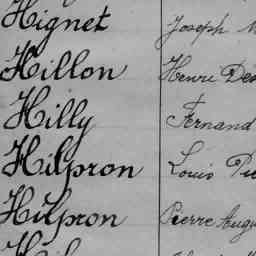 Hignet Joseph
Hillon Henri
Hilly Fernand
Hilpron Louis
Hilpron Pierre